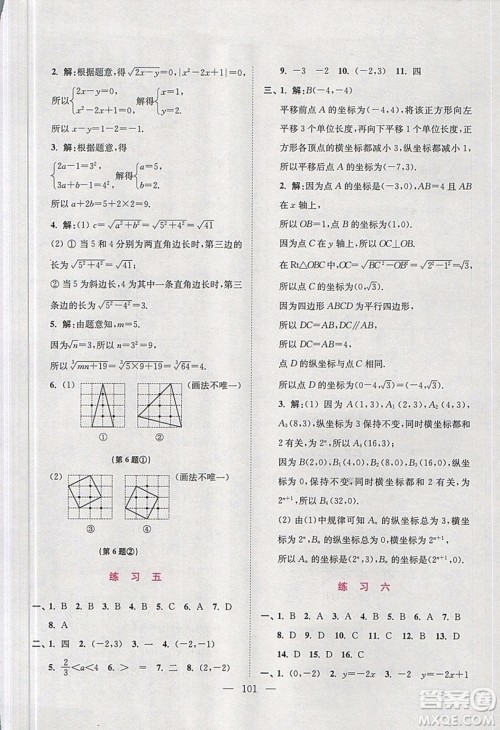 2. 解:根据题意,得√(2x-y)=0,|x²-2x+1|=0
所以{2x-y=0, x²-2x+1=0 解得{x=1, y=2
所以 x-y=1-2=-1.
3. 解:根据题意,得
{2a-1=3², 3a+b-1=4² 解得{a=5, b=2
所以 a+2b=5+2×2=9.
4. 解:(1) c=√(a²+b²)=√(5²+4²)=√41
(2) ① 当 5 和 4 分别为两直角边长时,第三边长为√(5²+4²)=√41.
② 当 5 为斜边长,4 为其中一条直角边长时,第三边长为√(5²-4²)=3.
5. 解:由题意知,m=5.
所以∛(mn+19)=∛(5×9+19)=∛64=4.
6. (1) (画法不唯一)
① ②
(第 6 题①)
(2) (画法不唯一)
③ ④
(第 6 题②)
练 习 五
一、1. B 2. B 3. B 4. B 5. C 6. A 7. D
8. A
二、1. 四 2. (-2,3) 3. 一 4. (-2,-1)
5. 2/3<a<4 6. > 7. 二 8. (2,-2)
9. -3 -2 10. (-2,3) 11. 四
三、1. 解:B(-4,-4)
平移前点 A 的坐标为(-4,4),将该正方形向左平移 3 个单位长度,再向下平移 1 个单位长度,正方形各顶点的横坐标都减小 3,纵坐标都减小 1,所以点 A 的坐标为(-7,3).
2. 解:因为点 A 的坐标为(-2,0),AB=4 且 AB 在 x 轴上,
所以 OB=2.
因为点 C 在 y 轴上,
所以 OC⊥OB.
在 Rt△OBC 中,OC=
因为四边形 ABCD 为平行四边形,
所以 DC=AB,DC∥AB.
所以 DC=4.
所以点 D 的纵坐标与点 C 的纵坐标相等.
所以点 D 的坐标为
3. 解:(1) 因为 A(1,3),A₁(2,3),A₂(4,3),A₃(8,3),纵坐标为 3 保持不变,横坐标都和 2 有关,为 2ⁿ,所以 A₄(16,3).
因为 B(2,0),B₁(4,0),B₂(8,0),B₃(16,0),纵坐标为 0 保持不变,横坐标都和 2 有关,为 2ⁿ⁺¹,所以 B₄(32,0).
(2) 由(1)中规律可知 Aₙ 的纵坐标总为 3,横坐标为 2ⁿ,Bₙ 的纵坐标总为 0,横坐标为 2ⁿ⁺¹.
练 习 六
一、1. B 2. D 3. B 4. C 5. C 6. B 7. D
8. D 9. D 10. B 11. C 12. B 13. B
二、1. (0,-2) 2. y=-2x 3. y=-2x+
101
答案圈
MXQE.COM